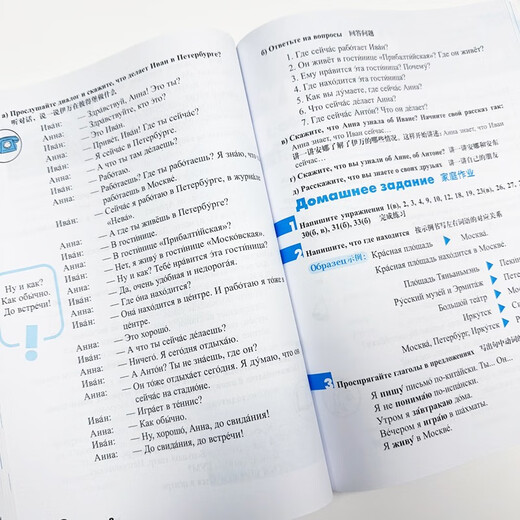 а) Прослушайте диалог и скажите, что делает Иван в Петербурге?
听对话，说一说伊万在彼得堡做什么
Ива́н: — Здра́вствуй, А́нна! Э́то ты?
А́нна: — Здра́вствуйте, кто э́то?
Ива́н: — Э́то Ива́н.
А́нна: — Приве́т, Ива́н! Где ты сейча́с?
Ива́н: — Я сейча́с в Петербу́рге.
А́нна: — А что ты там де́лаешь?
Ива́н: — Рабо́таю.
А́нна: — Рабо́таешь? Где ты рабо́таешь? Я зна́ю, что ты
рабо́таешь в Москве́.
Ива́н: — Сейча́с я рабо́таю в Петербу́рге, в журна́ле
«Нева́».
А́нна: — А где ты живёшь в Петербу́рге?
Ива́н: — В гости́нице.
А́нна: — В гости́нице «Прибалти́йская»?
Ива́н: — Нет, я живу́ в гости́нице «Моско́вская».
А́нна: — Ну и как? Тебе́ нра́вится э́та гости́ница?
Ива́н: — Да, о́чень удо́бная и недорога́я.
А́нна: — Где она́ нахо́дится?
Ива́н: — Она́ нахо́дится в це́нтре. И рабо́таю я то́же в
це́нтре.
А́нна: — Э́то хорошо́.
Ива́н: — А что ты сейча́с де́лаешь?
А́нна: — Ничего́. Я сего́дня отдыха́ю.
Ива́н: — А Анто́н? Ты не зна́ешь, где он?
А́нна: — Он то́же отдыха́ет сего́дня. Я ду́маю, что он
сейча́с на стадио́не.
Ива́н: — Игра́ет в те́ннис?
А́нна: — Как обы́чно.
Ива́н: — Ну, хорошо́, А́нна, до свида́ния!
А́нна: — До свида́ния, до встре́чи!
Ну и как?
Как обы́чно.
До встре́чи!
!
б) Ответьте на вопросы 回答问题
1. Где сейча́с рабо́тает Ива́н?
2. Он живёт в гости́нице «Прибалти́йская»? Где он живёт?
3. Ему́ нра́вится э́та гости́ница? Почему́?
4. Где нахо́дится гости́ница?
5. Как вы ду́маете, где сейча́с А́нна?
6. Что сейча́с де́лает А́нна?
7. Где сейча́с Анто́н? Что он де́лает?
в) Скажите, что Анна узнала об Иване? Начните свой рассказ так:
Анна знает, что Иван сейчас...
讲一讲安娜了解了伊万的哪些情况，这样开始讲述：Анна знает, что Иван
сейчас...
г) Скажите, что вы узнали об Анне, об Антоне? 讲一讲安娜和安东
д) Расскажите, что вы знаете о своих друзьях 讲一讲自己的朋友
Домашнее задание 家庭作业
1 Напишите упражнения 1(в), 2, 3, 4, 9, 10, 12, 18, 19, 23(в), 26, 27,
30(б, в), 31(б), 33(б) 完成练习
2 Напишите, что где находится 按示例书写左右词语的对应关系
Образец 示例: Кра́сная пло́щадь Москва́.
Кра́сная пло́щадь нахо́дится в Москве́.
Пло́щадь Тяньаньмэ́нь
Ру́сский музе́й и Эрмита́ж
Большо́й теа́тр
Ирку́тск
Москва́, Петербу́рг, Ирку́тск
3 Проспрягайте глаголы в предложениях
Я пишу́ письмо́ по-кита́йски. Ты... Он...
Я не понима́ю по-испа́нски.
У́тром я за́втракаю до́ма.
Ве́чером я игра́ю в ша́хматы.
Я живу́ в Москве́.